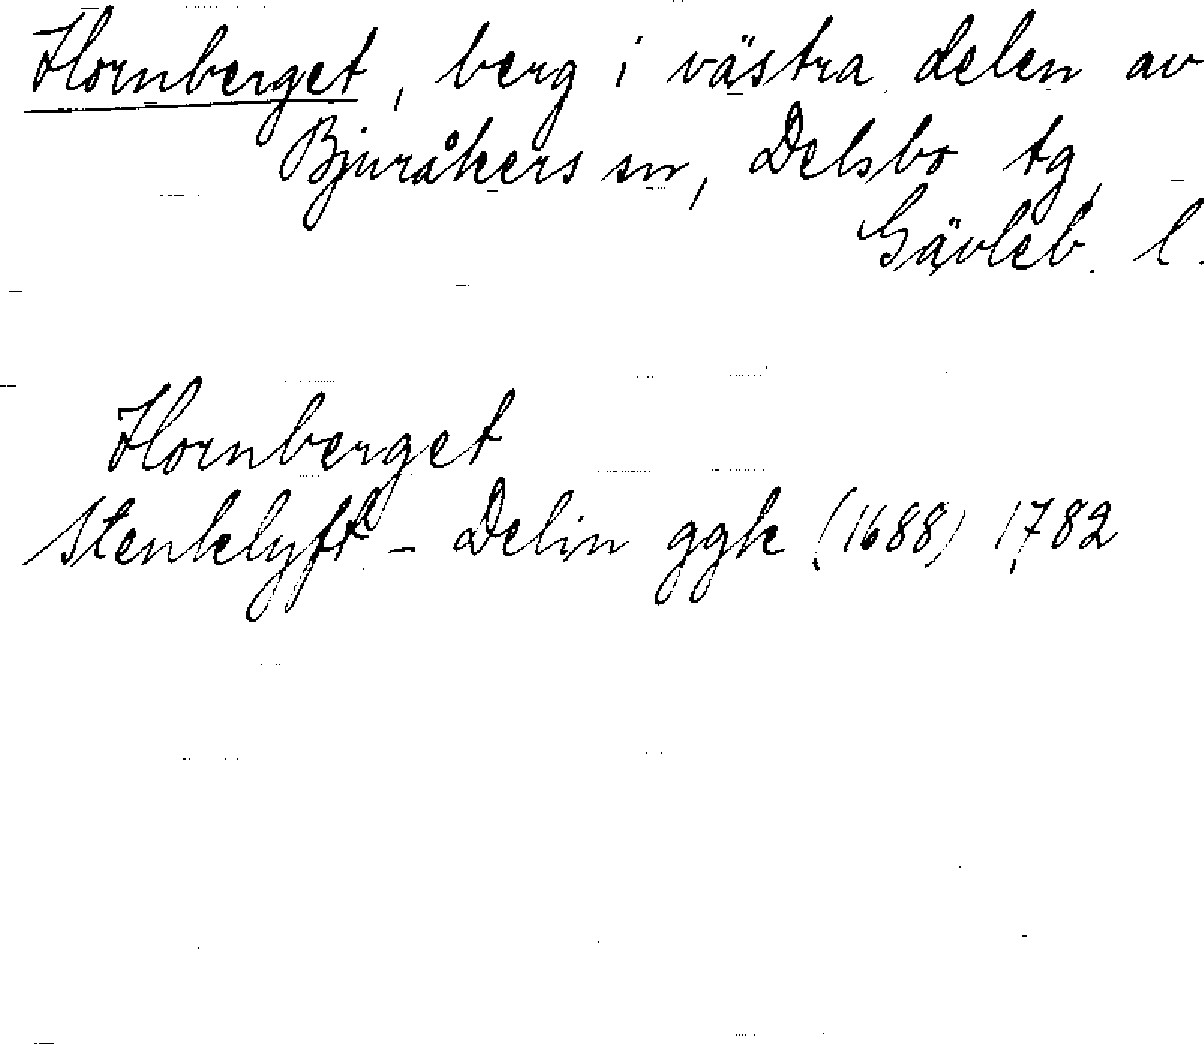 Hornberget, berg i västra delen av
Bjuråkers sn, Delsbo tg,
Gävleb. l.
Hornberget
Stenklyft – Delin ggk (1688) 1782